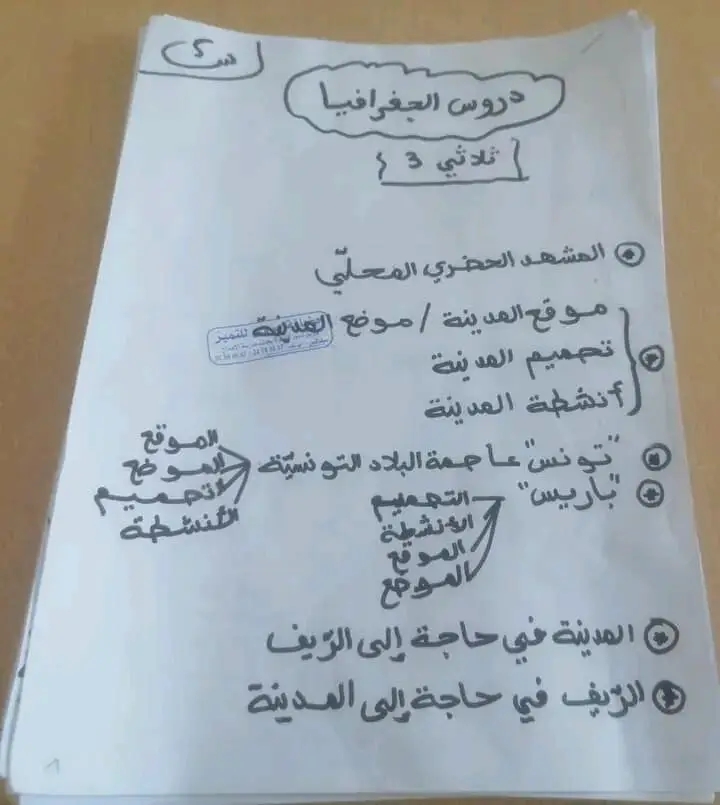 س 5
دروس الجغرافيا
ثلاثي 3
المشهد الحضري المحلّي
موقع المدينة / موضع المدينة
تصميم المدينة
أنشطة المدينة
"تونس" عاصمة البلاد التونسيّة
الموقع
الموضع
التصميم
الأنشطة
"باريس"
التصميم
الأنشطة
الموقع
الموضع
المدينة في حاجة إلى الرّيف
الرّيف في حاجة إلى المدينة
1